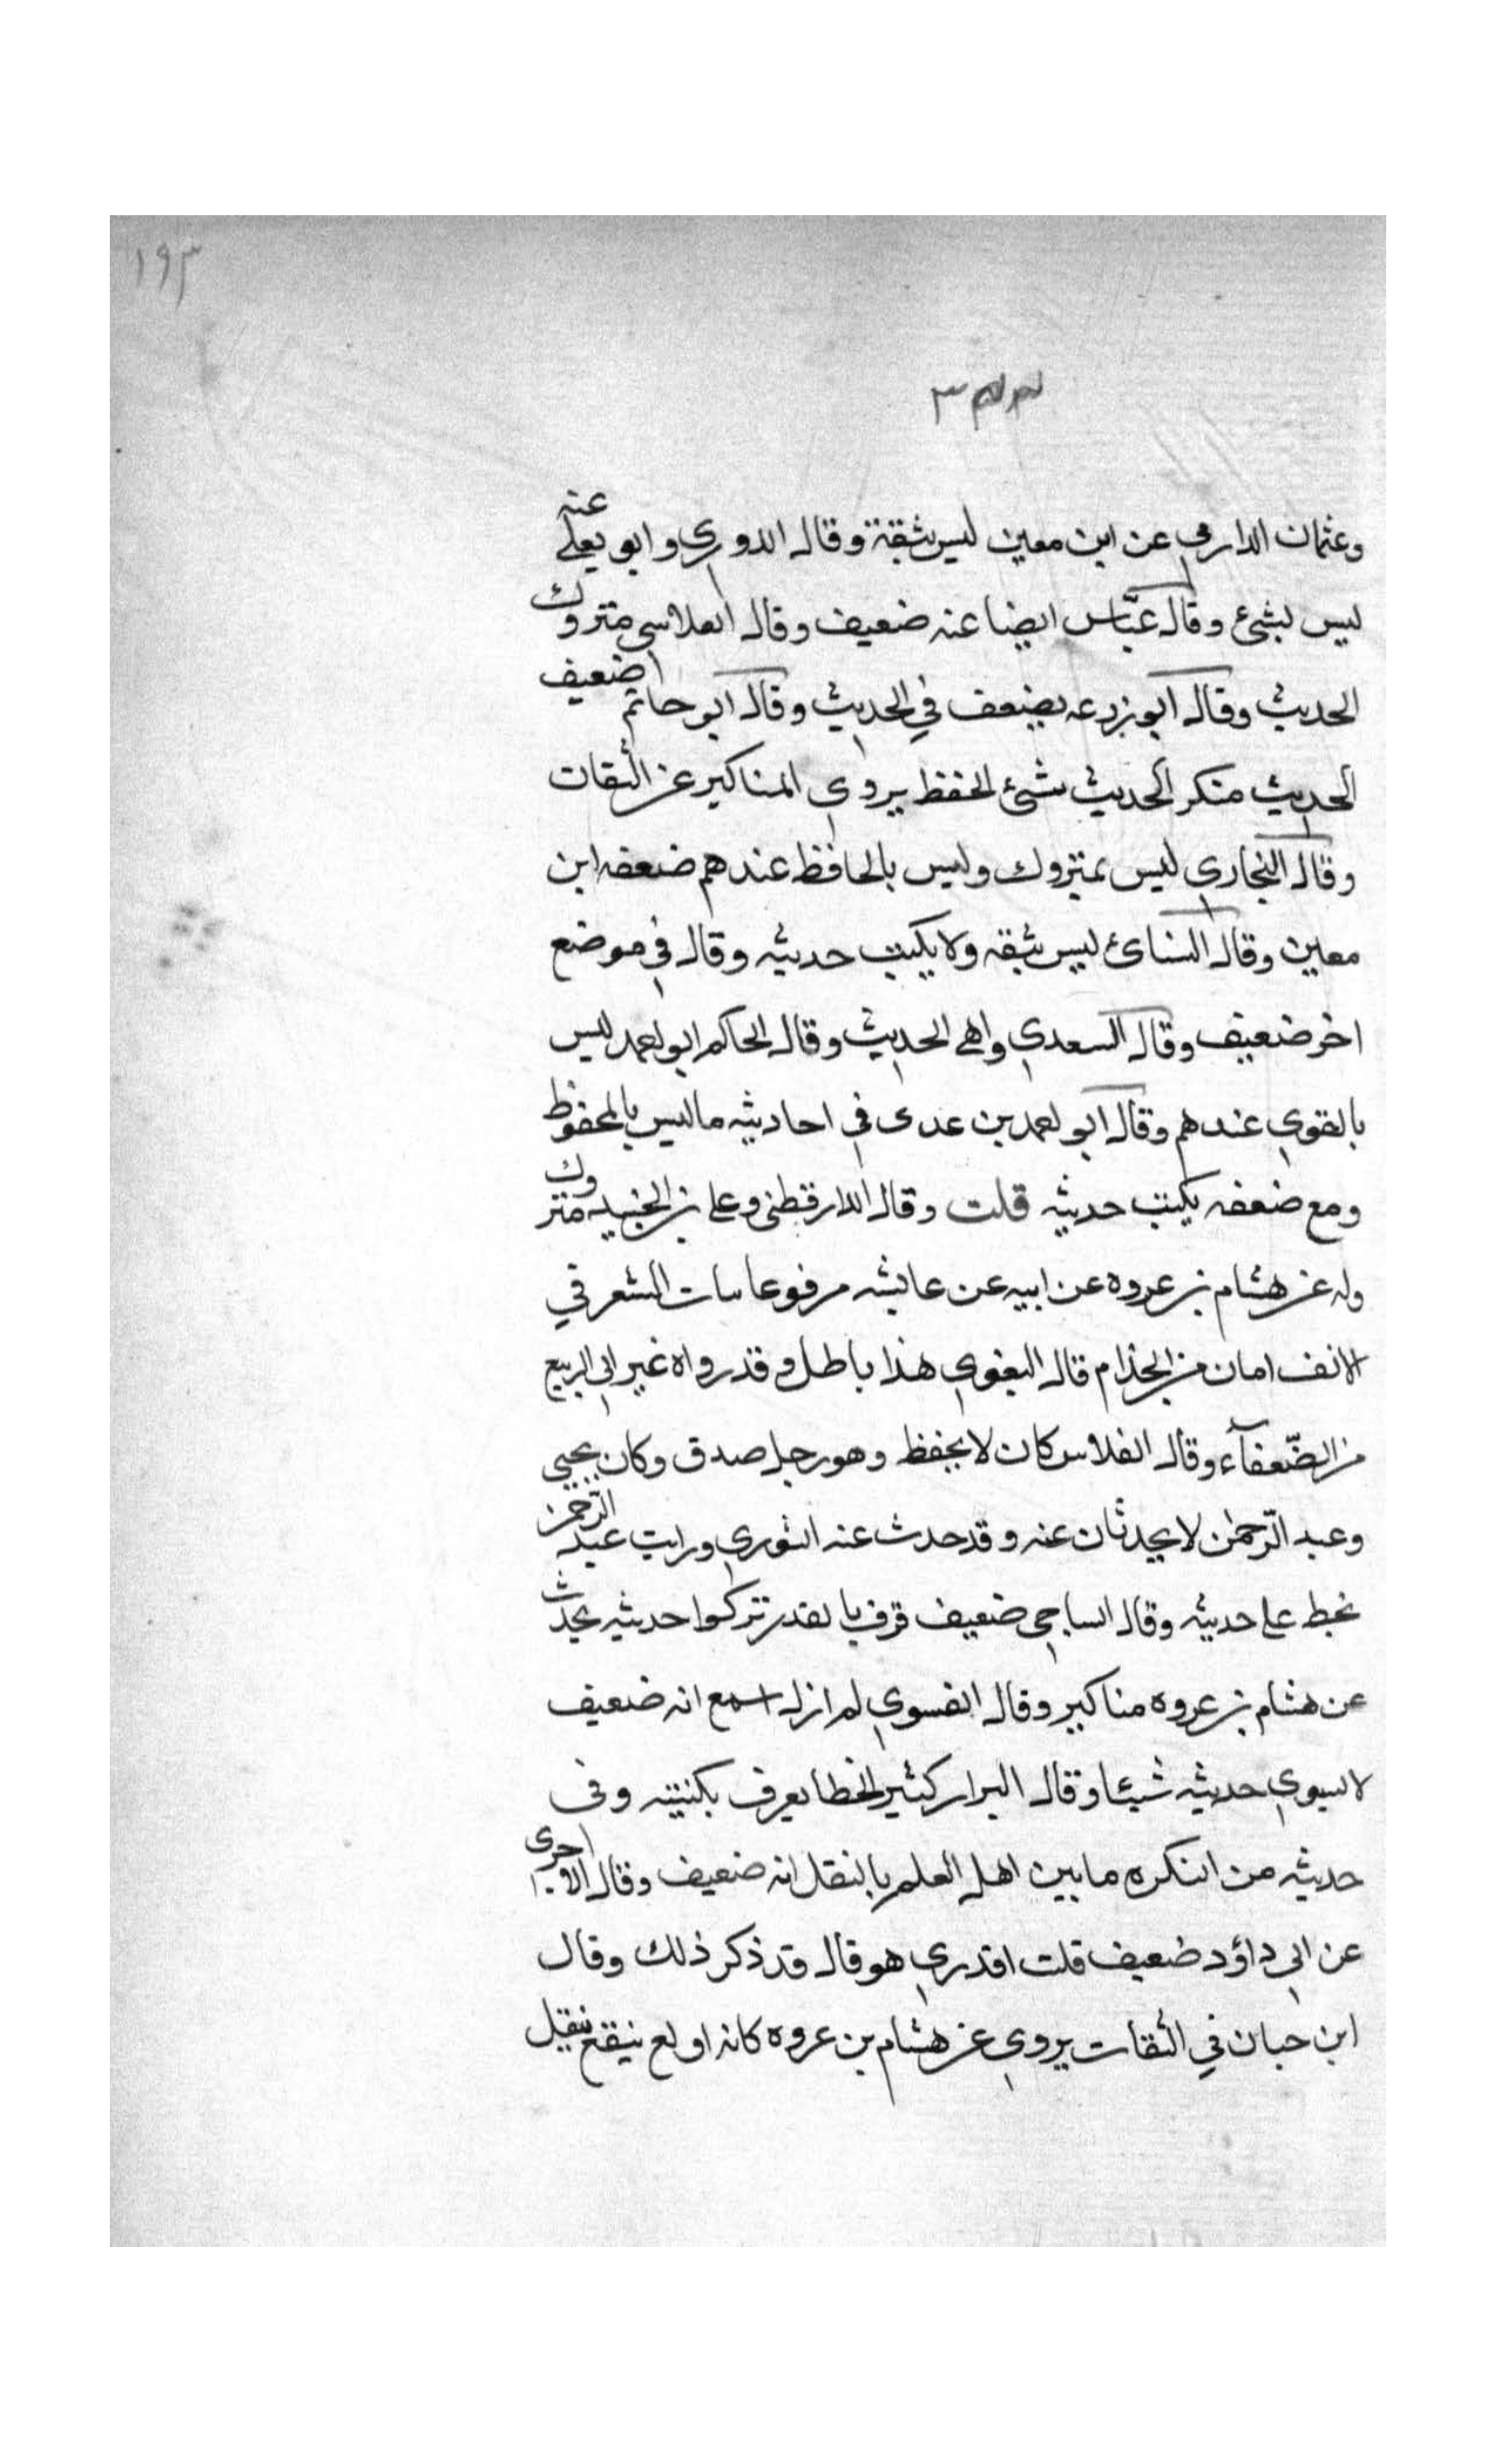 ١٩٣
وعثمان الدارمي عن ابن معين ليس بثقة وقال الدوري وابو يعلى عنه
ليس بشئ وقال عبّاس ايضا عنه ضعيف وقال الفلاس متروك
الحديث وقال ابو زرعه يضعف في الحديث وقال ابو حاتم ضعيف
الحديث منكر الحديث سئ الحفظ يروي المناكير عن الثقات
وقال البخاري ليس بمتروك وليس بالحافظ عندهم ضعفه ابن
معين وقال النسائ ليس بثقه ولا يكتب حديثه وقال في موضع
اخر ضعيف وقال السعدي واهي الحديث وقال الحاكم ابو احمد ليس
بالقوي عندهم وقال ابو احمد بن عدى في احاديثه ما ليس بالمحفوظ
ومع ضعفه يكتب حديثه قلت وقال الدارقطنى وعلى بن الجنيد متروك
وله عن هشام بن عروه عن ابيه عن عايشه مرفوعا نبات الشعر في
الانف امان من الجذام قال البغوي هذا باطل وقد رواه غير ابى الربيع
من الضّعفآء وقال الفلاس كان لا يحفظ وهو رجل صدق وكان يحيى
وعبد الرّحمٰن لا يحدثان عنه وقد حدث عنه الثوري ورايت عبد الرّحمن
يخط على حديثه وقال الساجى ضعيف قرف بالقدر تركوا حديثه يحدث
عن هشام بن عروه مناكير وقال الفسوي لم ازل اسمع انه ضعيف
لا يسوي حديثه شيئا وقال البزار كثير الخطا يعرف بكنيته وفى
حديثه من النكره ما بين اهل العلم بالنقل انه ضعيف وقال الاجرى
عن ابى داؤد ضعيف قلت اقدري هو قال قد ذكر ذلك وقال
ابن حبان في الثقات يروي عن هشام بن عروه كانه اولع